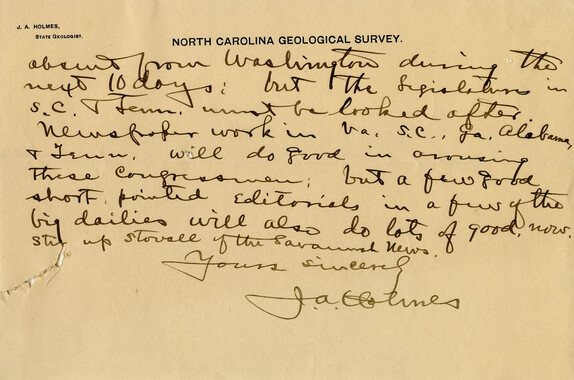 J. A. HOLMES,
STATE GEOLOGIST.
NORTH CAROLINA GEOLOGICAL SURVEY.
absent from Washington during the
next 10 days; but the Legislators in
S.C. & Tenn. must be looked after.
Newspaper work in Va, S.C., Ga, Alabama,
& Tenn. will do good in arousing
these Congressmen; but a few good
short, pointed Editorials in a few of the
big dailies will also do lots of good, now.
Stir up Stovall of the Savannah News.
Yours sincerely
J. A. Holmes